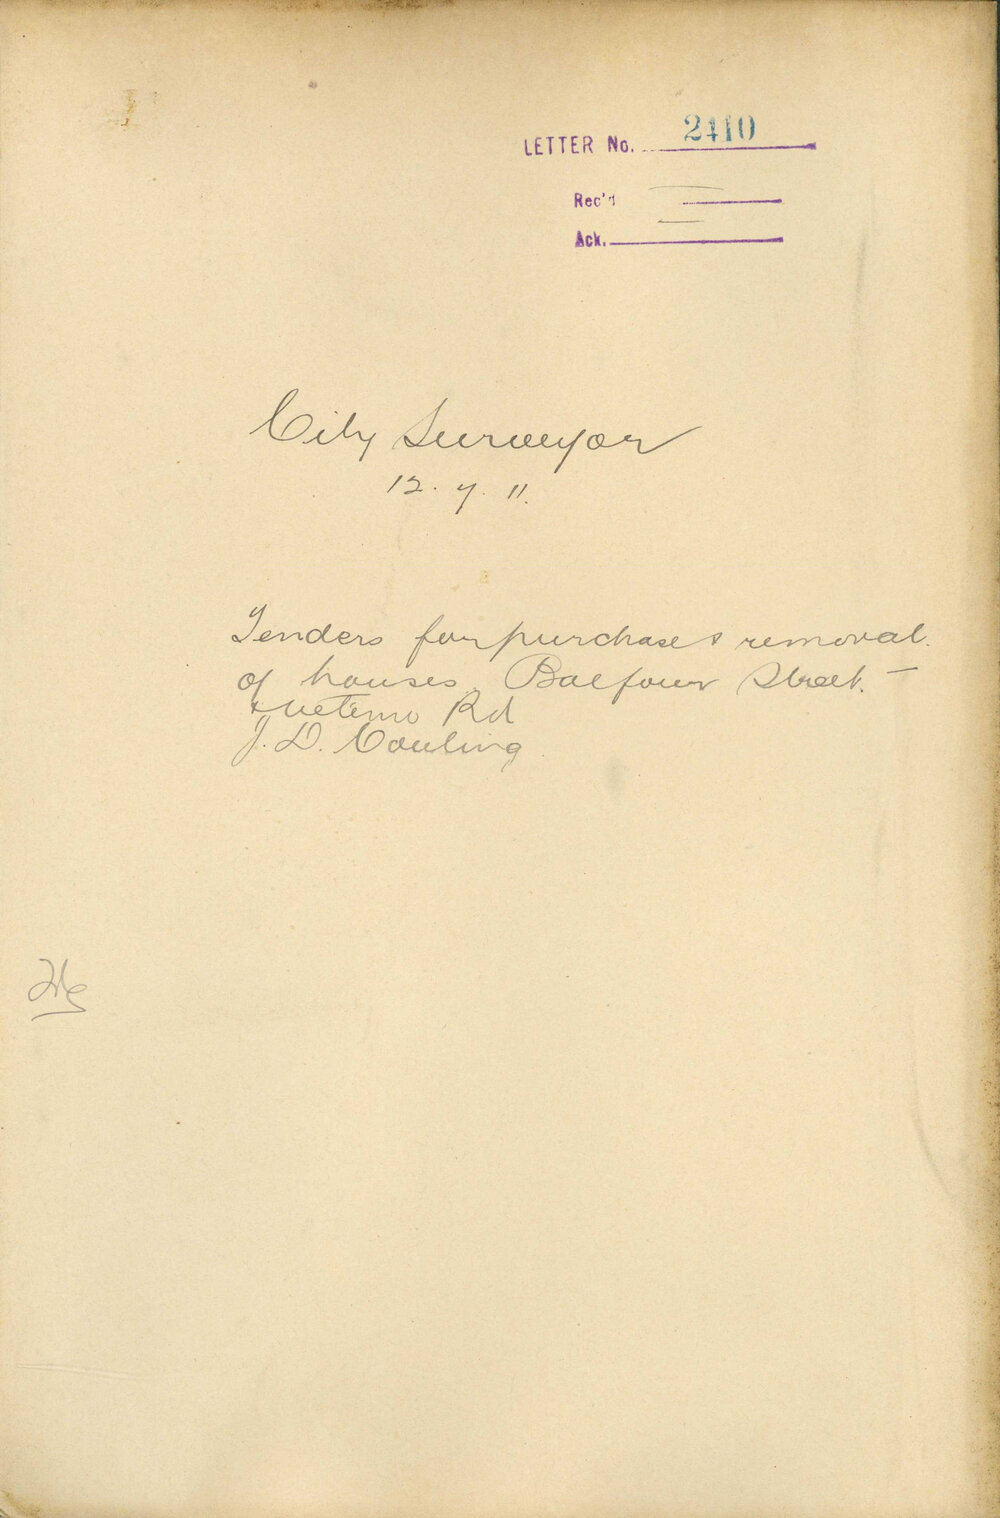 LETTER No. 2410
Rec'd
Ack.
City Surveyor
12. 7. 11.
Tenders for purchase & removal.
of houses, Balfour Street. –
& Rd
J. D. Couling